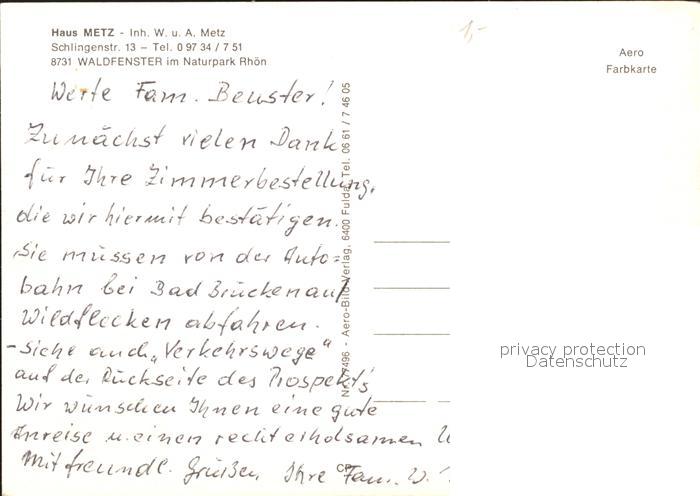 Haus METZ - Inh. W. u. A. Metz
Schlingenstr. 13 – Tel. 0 97 34 / 7 51
8731 WALDFENSTER im Naturpark Rhön
1,-
Aero
Farbkarte
Werte Fam. Beuster!
Zunächst vielen Dank
für Ihre Zimmerbestellung,
die wir hiermit bestätigen.
Sie müssen von der Auto=
bahn bei Bad Brückenau/
Wildflecken abfahren.
- siehe auch „Verkehrswege"
auf der Rückseite des Prospekts
Wir wünschen Ihnen eine gute
Anreise u. einen recht erholsamen U
Mit freundl. Grüßen, Ihre Fam. W.
Aero-Bild-Verlag, 6400 Fulda, Tel. 06 61 / 7 46 05
CP
privacy protection
Datenschutz